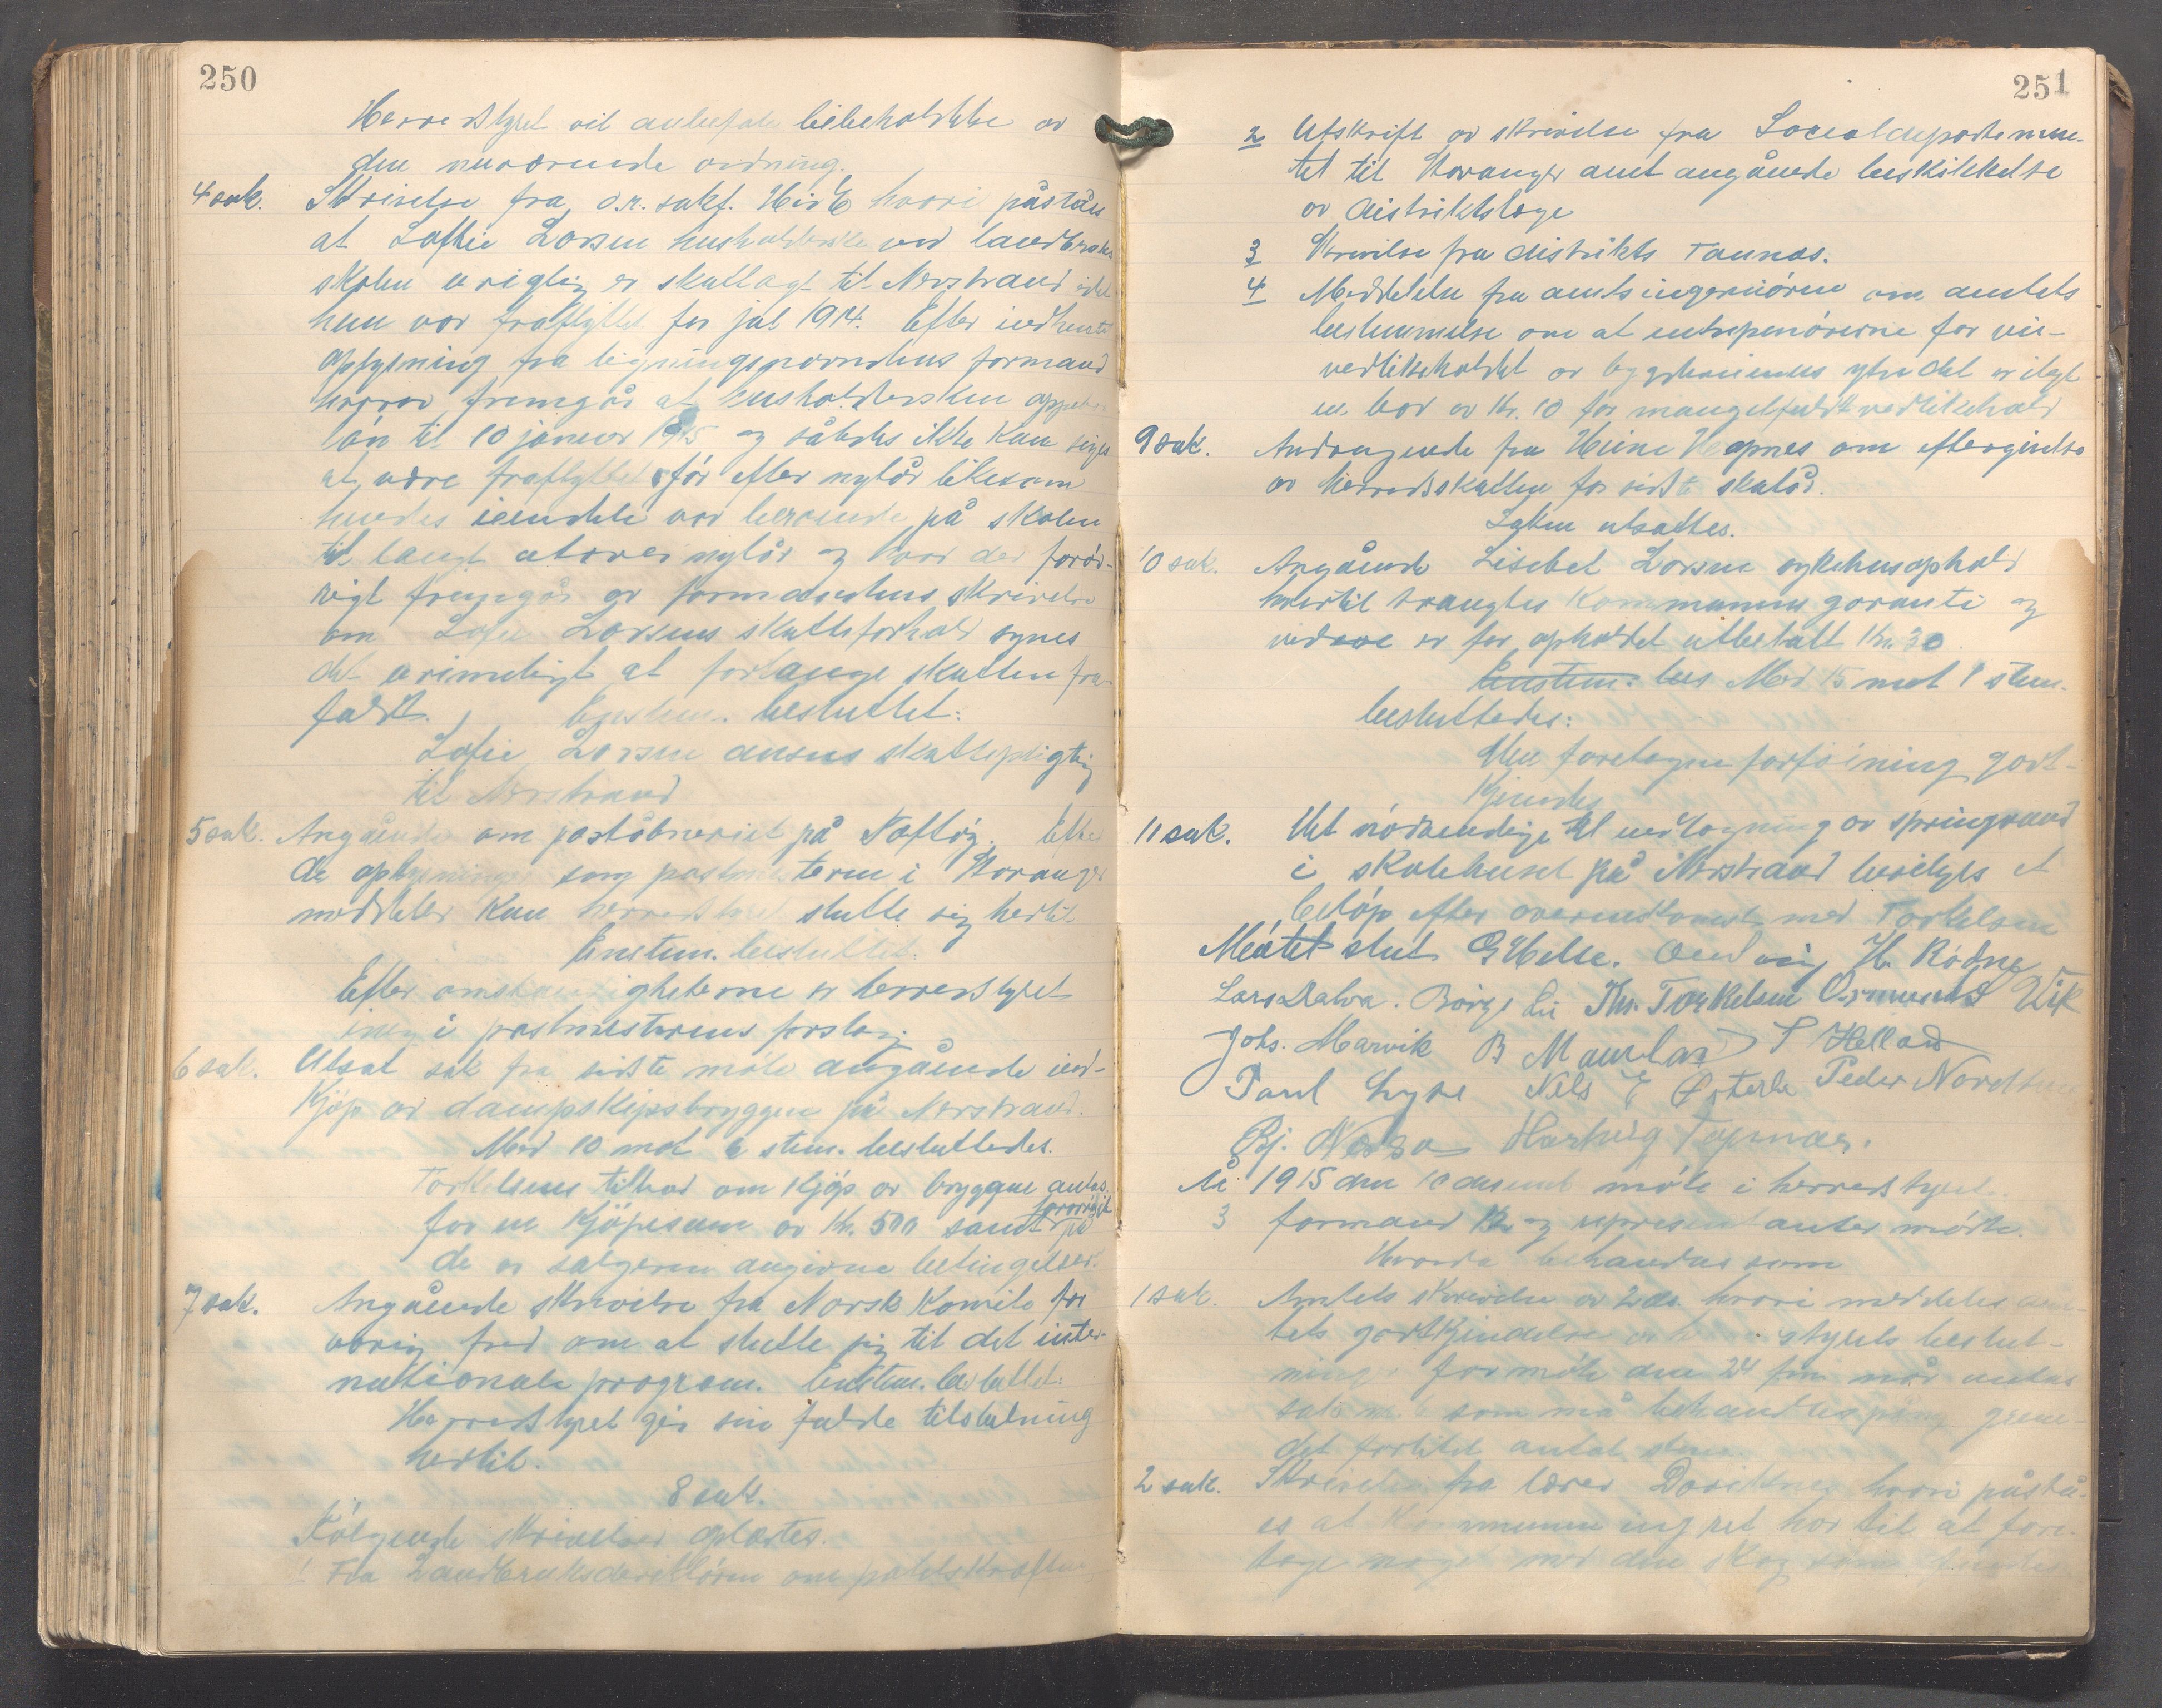 250
Herredstyret vil anbefale bibeholdelse av
den nuværende ordning.
4 sak. Skrivelse fra o.r. sakf. hvori påståes
at Sofie Larsen husholderske ved landbruks
skolen urigtig er skatlagt til Nerstrand idet
hun var fraflyttet før jul 1914. Efter indhentet
oplysning fra ligningsnævndens formand
hvorav fremgår at husholdersken oppebar
løn til 10 januar 1915 og således ikke kan siges
at være fraflyttet før efter nytår likesom
hendes iendele var beroende på skolen
til langt utover nytår og hvad der forøv-
rigt fremgår av formandens skrivelse
om Sofie Larsens skatteforhold synes
det urimeligt at forlange skatten fra-
faldt. Enstem. besluttet:
Sofie Larsen ansees skattepligtig
til Nerstrand
5 sak. Angående om poståbneriet på Efter
de oplysninger som postmesteren i Stavanger
meddeler kan herredstyret slutte sig hertil
Enstem. besluttet:
Efter omstændigheterne er herredstyret
enig i postmesterens forslag.
6 sak. Utsat sak fra sidste møte angående ind-
kjøp av dampskipsbryggen på Nerstrand.
Med 10 mot 6 stem. besluttedes.
Torkelsens tilbud om kjøp av bryggen antas
for en kjøpesum av Kr. 500 samt forøvrigt på
de av sælgeren angivne betingelser.
7 sak. Angående skrivelse fra Norsk Komite for
varig fred om at slutte sig til det inter-
nationale program. Enstem. besluttet:
Herredstyret gir sin fulde tilslutning
hertil.
8 sak.
Følgende skrivelser oplæstes.
1 Fra Landbruksdirektøren om
251
2 Utskrift av skrivelse fra Socialdepartemen-
tet til Stavanger amt angående beskikkelse
av distriktslæge
3 Skrivelse fra distrikts Tannas.
4 Meddelelse fra amtsingeniøren om amtets
bestemmelse om at entreprenørerne for vei-
vedlikeholdet av bygdeveienes ytre del er ilagt
en bod av Kr. 10 for mangelfuldt vedlikehold
9 sak. Andragende fra Heine Hapnes om eftergivelse
av herredsskatten for sidste skatår.
Saken utsattes.
10 sak. Angående Lisebet Larsen sykehusophold
hvortil trængtes Kommunens garanti og
er for opholdet utbetalt Kr. 30
Enstem. bes Med 15 mot 1 stem.
besluttedes:
Den foretagne forføining godt-
kjendes
11 sak. Det nødvendige til indlægning av springvand
i skolehuset på Nerstrand bevilges et
beløp efter overenskomst med Torkelsen
Møtet slut G Helle. H. Rødne
Lars Dalva. Børge Lie Ths. Torkelsen Osmund Vik
Johs. Marvik B Meuland T Helland
Paul Lyse Nils E Østerle Peder
Bj. Nessa Hartvig Tapnæs.
År 1915 den 10 desemb møte i herredstyret.
formand og 13 representanter møtte.
Hvorda behandles som
1 sak. Amtets skrivelse av 2 ds. hvori meddeles am-
tets godkjendelse av styrets beslut-
ninger for møte den 24 f.m. når undtas
sak som må behandles påny grun-
det forlitet antal stem.
2 sak. Skrivelse fra lærer hvori påstå-
es at Kommunen ingen ret har til at fore-
tage noget med den skog som fandtes